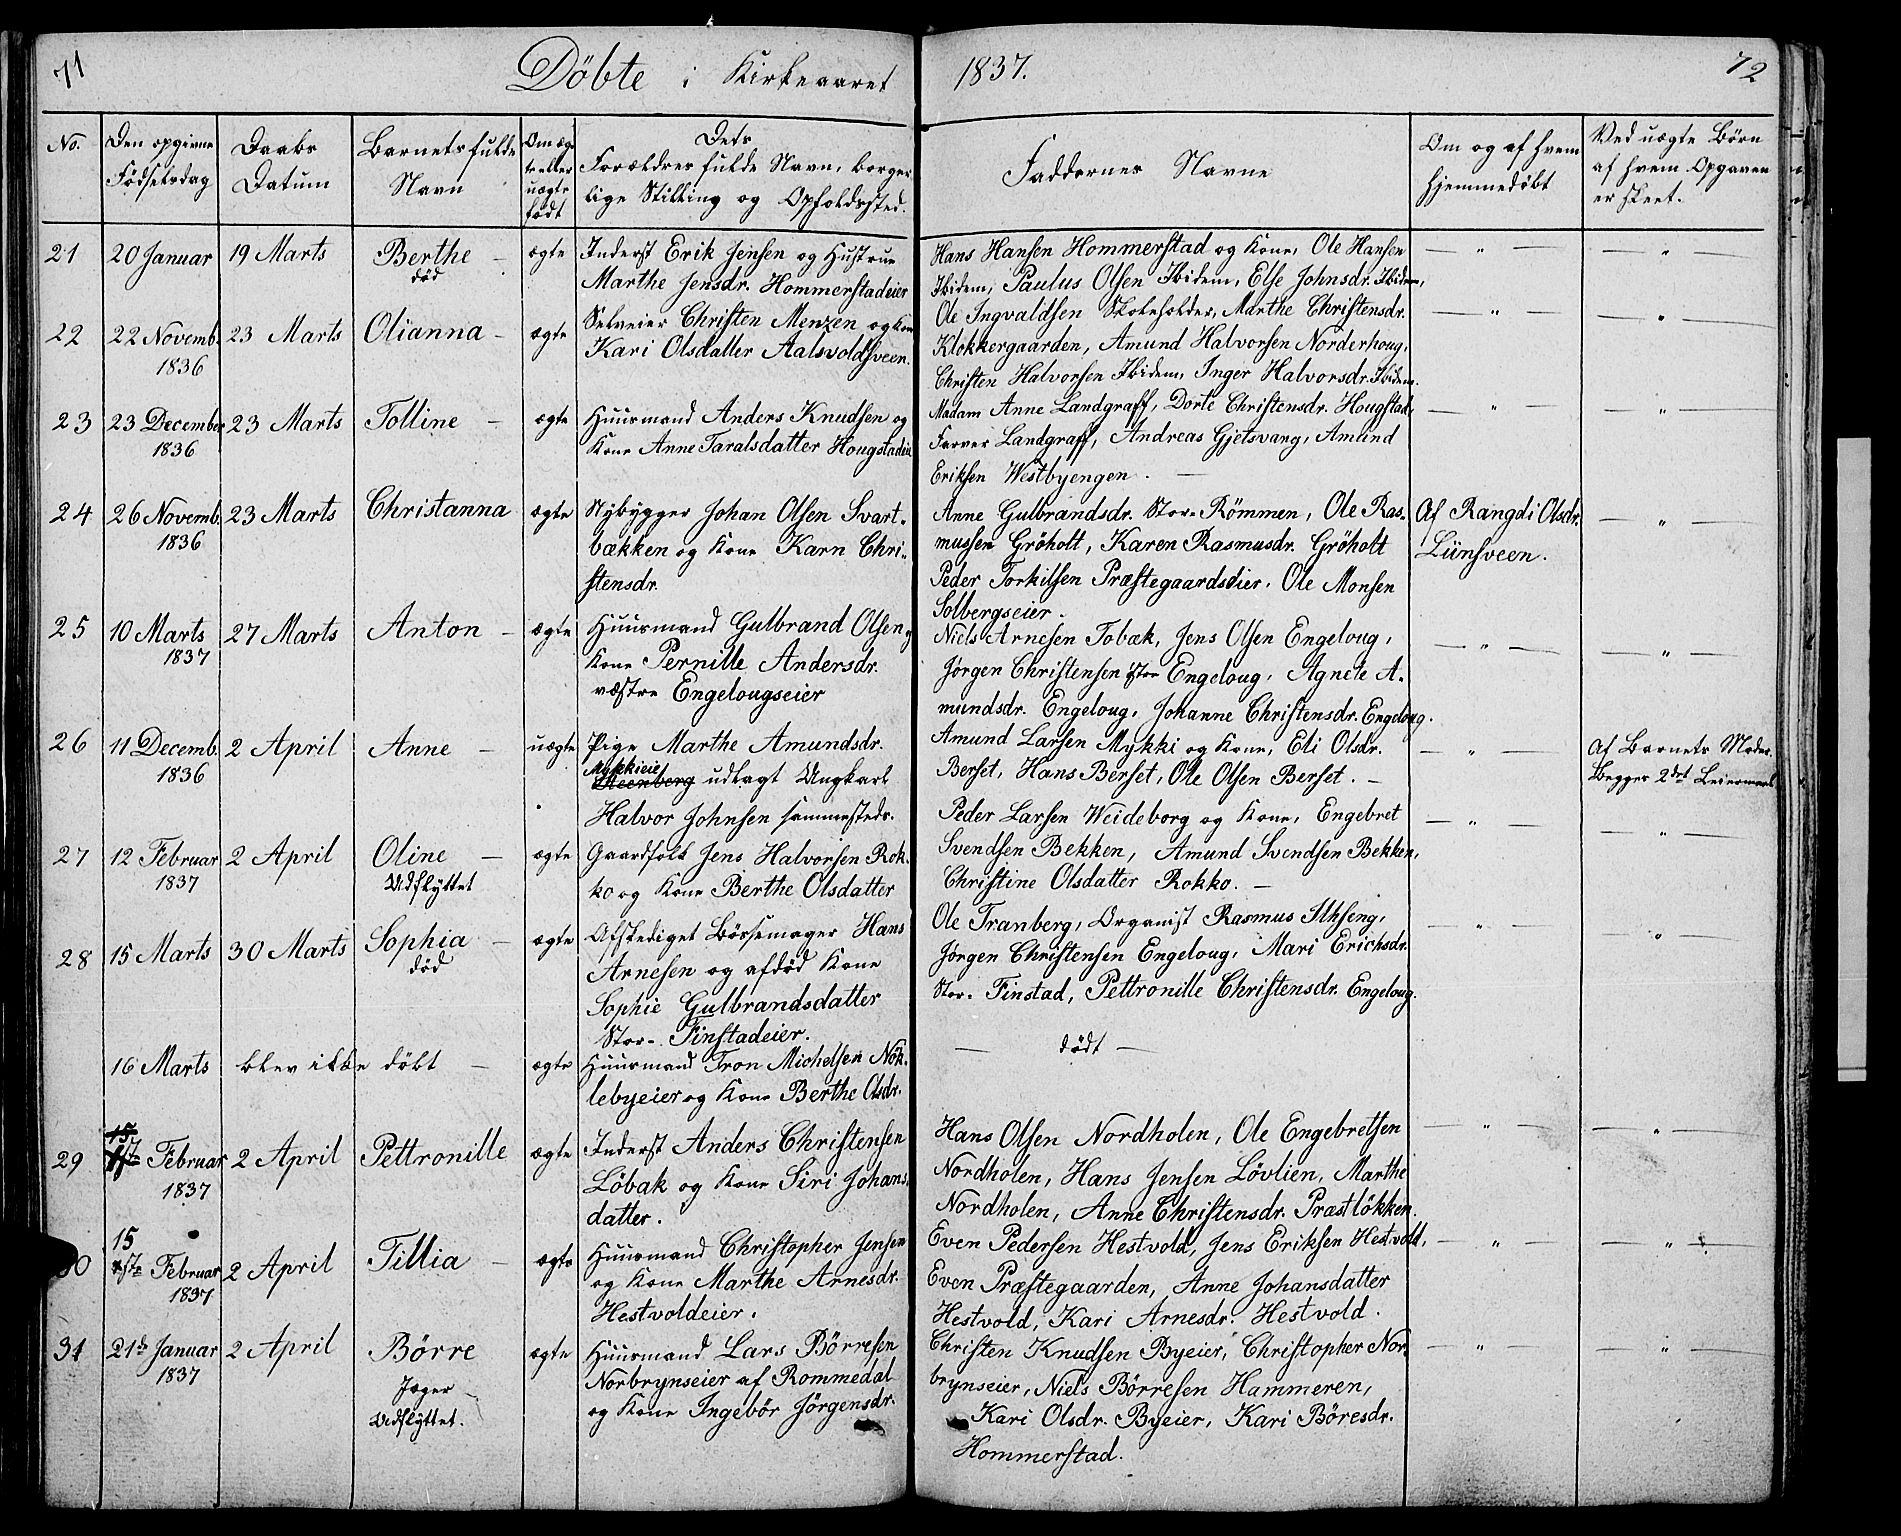 71
Döbte i Kirkeaaret
1837.
72
No.
Den opgivne
Födselsdag
Daabs
Datum
Barnets fulde
Navn
Om æg-
te eller
uægte
födt
Dets
Forældres fulde Navn, borger
lige Stilling og Opholdssted.
Faddernes Navne
Om og af hvem
hjemmedöbt
Ved uægte Börn
af hvem Opgaven
er skeet.
21
20 Januar
19 Marts
Berthe -
död
ægte
Inderst Erik Jensen og Hustrue
Marthe Jensdr. Hommerstadeier
Hans Hansen Hommerstad og Kone, Ole Hansen
Ibidem, Paulus Olsen Ibidem, Else Johnsdr. Ibidem,
— " —
— " —
22
22 Novemb.
1836
23 Marts
Olianna -
ægte
Selveier Christen Menzen og Kone
Kari Olsdatter Aalsvoldsveen.
Ole Ingvaldsen Skoleholder, Marthe Christensdr.
Klokkergaarden, Amund Halvorsen Norderhoug,
Christen Halvorsen Ibidem, Inger Halvorsdr. Ibidem.
— " —
— " —
23
23 December
1836
23 Marts
Tolline -
ægte
Huusmand Anders Knudsen og
Kone Anne Taralsdatter Hougstadeie
Madam Anne Landgraff, Dorte Christensdr. Hougstad,
Farver Landgraff, Andreas Gjetsvang, Amund
Eriksen Westbyengen. —
— " —
— " —
24
26 Novemb.
1836
23 Marts
Christanna
ægte
Nybygger Johan Olsen Svart-
bækken og Kone Karn Chri-
stensdr.
Anne Gulbrandsdr. Stor-Römmen, Ole Ras-
mussen Gröholt, Karen Rasmusdr. Gröholt
Peder Torkilsen Præstegaardseier, Ole Monsen
Solbergseier.
Af Rangdi Olsdr.
Lünsveen.
— " —
25
10 Marts
1837
27 Marts
Anton -
ægte
Huusmand Gulbrand Olsen og
Kone Pernille Andersdr.
vestre Engelougseier
Niels Arnesen Tobæk, Jens Olsen Engeloug,
Jörgen Christensen östre Engeloug, Agnete A-
mundsdr. Engeloug, Johanne Christensdr. Engeloug.
— " —
— " —
26
11 Decemb.
1836
2 April
Anne -
uægte
Pige Marthe Amundsdr.
Mykkieie
Steenberg udlagt Ungkarl
Halvor Johnsen sammesteds.
Amund Larsen Mykki og Kone, Eli Olsdr.
Berset, Hans Berset, Ole Olsen Berset. —
— " —
Af Barnets Moder.
Begges 2det Leiermaal
27
12 Februar
1837
2 April
Oline -
Udflyttet
ægte
Gaardfolk Jens Halvorsen Rok-
ko og Kone Berthe Olsdatter
Peder Larsen Weideborg og Kone, Engebret
Svendsen Bekken, Amund Svendsen Bekken,
Christine Olsdatter Rokko. —
— " —
— " —
28
15 Marts
30 Marts
Sophia -
död
ægte
Afskediget Börsemager Hans
Arnesen og afdöd Kone
Sophie Gulbrandsdatter
Stor-Finstadeier.
Ole Tranberg, Organist Rasmus Ilhseng,
Jörgen Christensen Engeloug, Mari Erichsdr.
Stor-Finstad, Pettronille Christensdr. Engeloug.
— " —
— " —
16 Marts
blev ikke döbt -
ægte
Huusmand Tron Michelsen Nök-
lebyeier og Kone Berthe Olsdr.
— födt —
29
15
Februar
1837
2 April
Pettronille
ægte
Inderst Anders Christensen
Löbak og Kone Siri Johans-
datter.
Hans Olsen Nordholen, Ole Engebretsen
Nordholen, Hans Jensen Lövlien, Marthe
Nordholen, Anne Christensdr. Præstlökken.
— " —
— " —
30
15
Februar
1837
2 April
Tillia -
ægte
Huusmand Christopher Jensen
og Kone Marthe Arnesdr.
Hestvoldeier.
Even Pedersen Hestvold, Jens Eriksen Hestvold,
Even Præstegaarden, Anne Johansdatter
Hestvold, Kari Arnesdr. Hestvold.
— " —
— " —
31
21de Januar
1837
2 April
Börre
Jæger
Udflyttet.
ægte
Huusmand Lars Börresen
Norbrynseier af Rommedal
og Kone Ingebör Jörgensdr.
Christen Knudsen Byeier, Christopher Nor-
brynseier, Niels Börresen Hammeren,
Kari Olsdr. Byeier, Kari Böresdr.
Hommerstad.
— " —
— " —